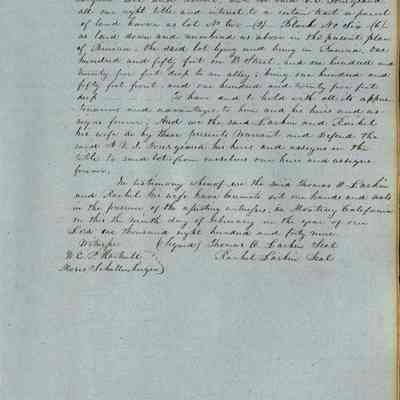 all our right title and interest to a certain tract or parcel
of land known as lot No two (2) Block No Six (6)
as laid down and numbered as above in the present plan
of Benicia, the said lot lying and being in Benicia, one
hundred and fifty feet on D Street, and one hundred and
twenty five feet deep to an alley; being one hundred and
fifty feet front and one hundred and twenty five feet
deep To have and to hold with all its appur
tenances and advantages to him and his heirs and as
signs forever; And we the said Larkin and Rachel
his wife do by these presents warrant and defend the
said his heirs and assigns in the
title to said lot from ourselves our heirs and assigns
forever.
In testimony whereof we the said Thomas O. Larkin
and Rachel his wife have hereunto set our hands and seals
in the presence of the witnesses, in Monterey California
on this the ninth day of February in the year of our
Lord one thousand eight hundred and forty nine.
Witnesses (Signed) Thomas O. Larkin Seal
W. E. P. Hartnell Rachel Larkin Seal
Moses Schallenberger